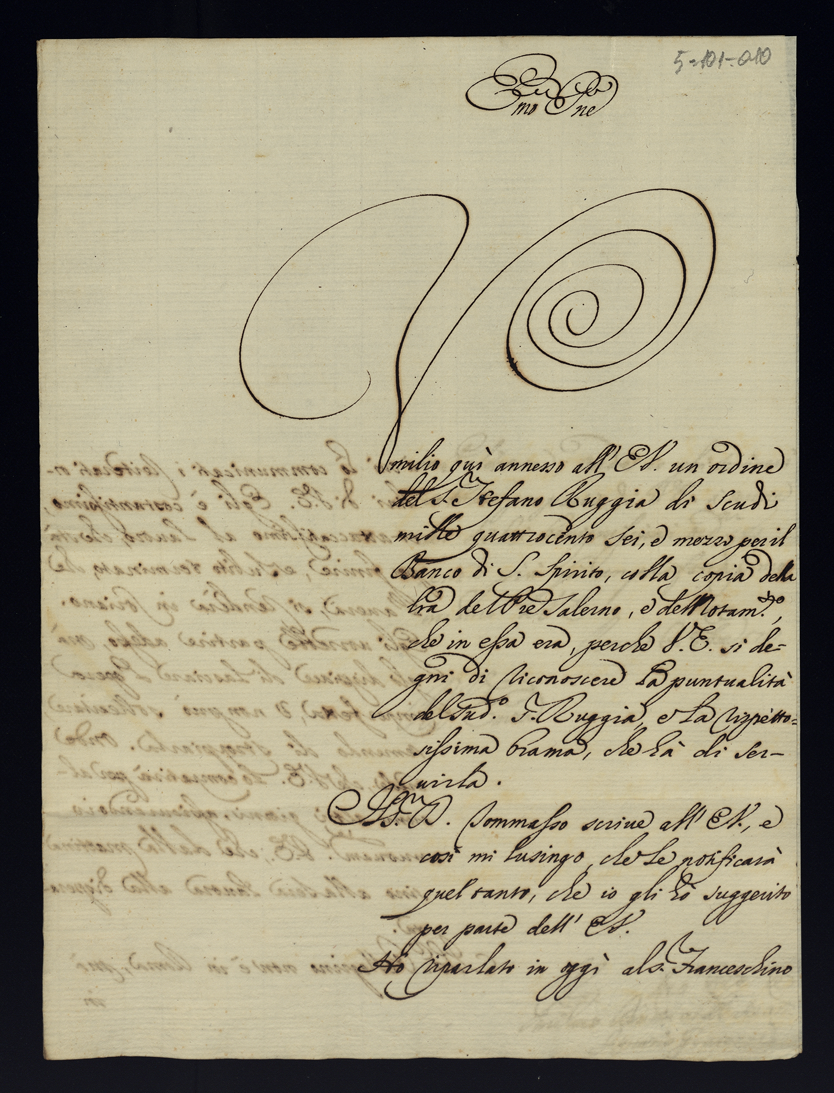 5-101-010
Emo Pne
Umilio quì annesso all' EV. un ordine
del S. Stefano Ruggia di scudi
mille quattrocento sei, e mezzo per il
Banco di S. Spirito, colla copia della
lrã del Pre Salerno, e del
che in essa era, perche V.E. si de=
gni di riconoscere la puntualità
del sud.º S. Ruggia, e la rispetto=
sissima brama, che hà di ser=
virla.
Tommasso scrive all' EV., e
così mi lusingo, che le notificarà
quel tanto, che io gli hò suggerito
per parte dell' EV.
Hò riparlato in oggi al S. Franceschino